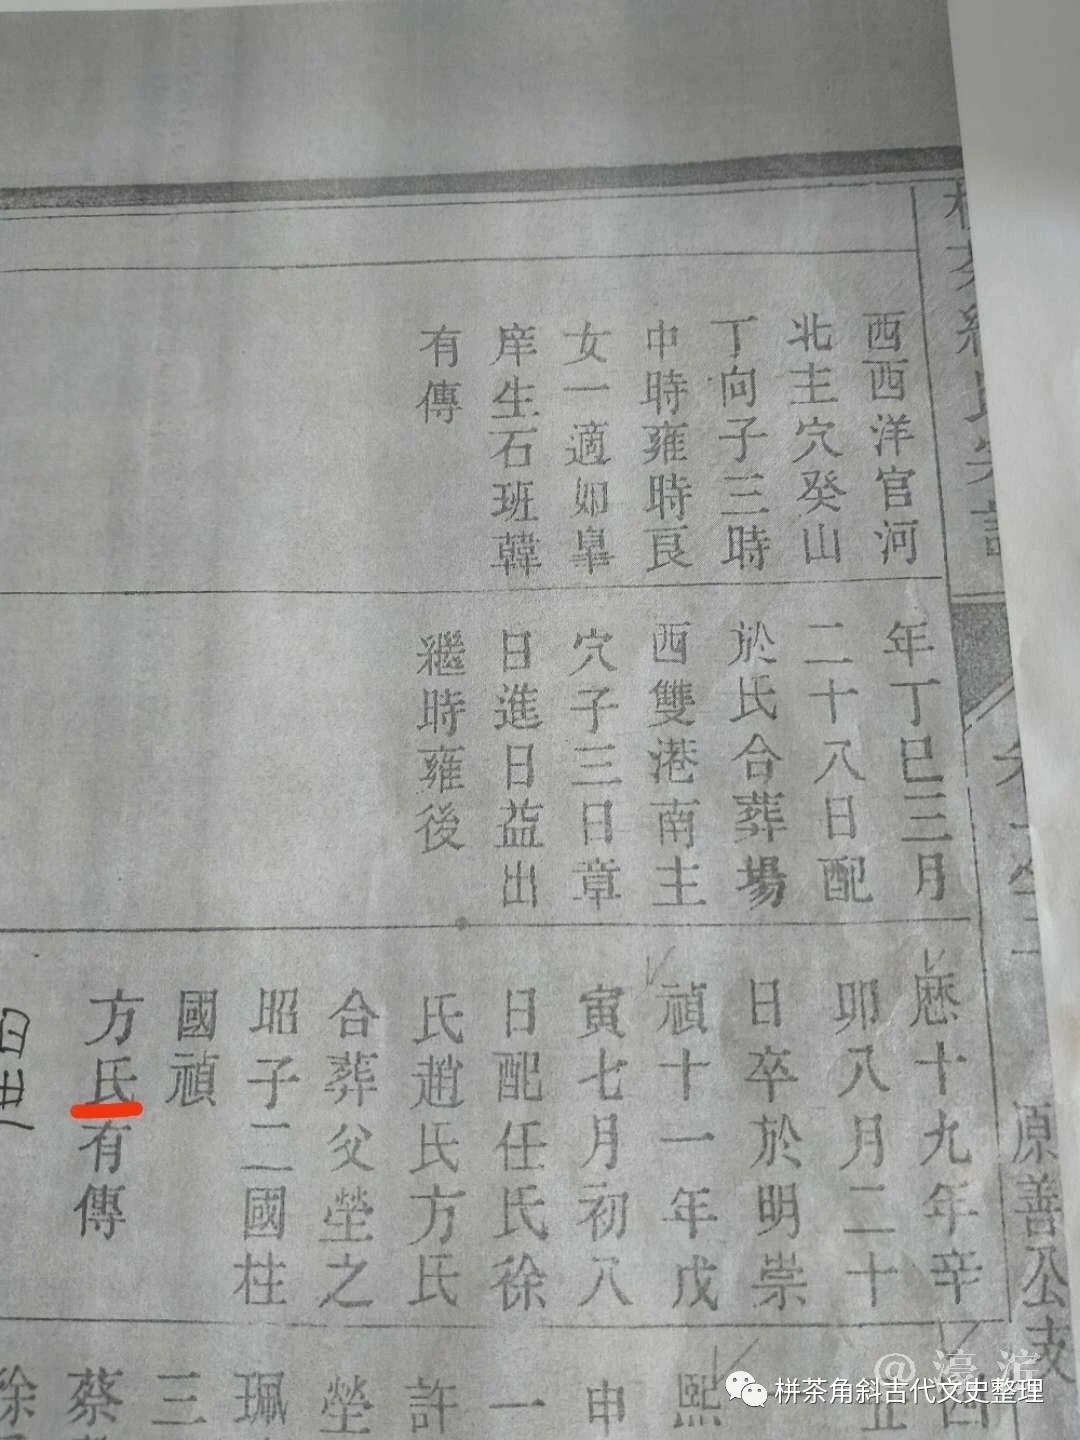 西西洋官河
北主穴癸山
丁向子三時
中時雍時良
女一適如皋
庠生石班韓
有傳
年丁巳三月
二十八日配
於氏合葬場
西雙港南主
穴子三日章
日進日益出
繼時雍後
厯十九年辛
卯八月二十
日卒於明崇
禎十一年戊
寅七月初八
日配任氏徐
氏趙氏方氏
合葬父塋之
昭子二國柱
國禎
方氏有傳
熙
申
一
許
塋
珮
三
蔡
徐
原善公支
@濠滨
栟茶角斜古代文史整理